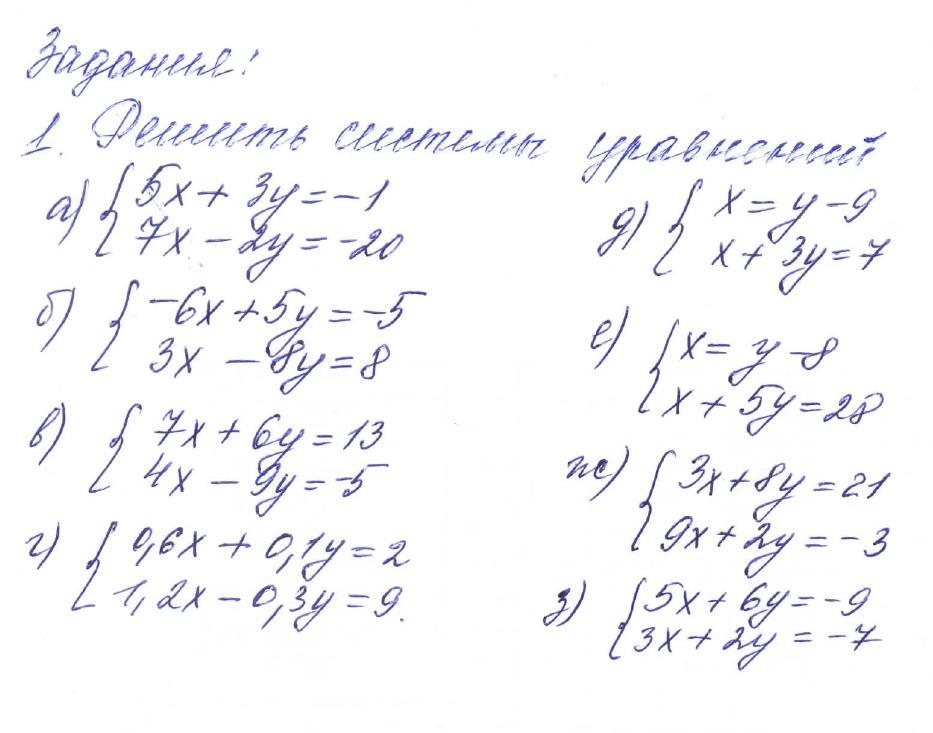 Задания:
1. Решить системы уравнений
а) { 5x + 3y = -1
7x - 2y = -20
б) { -6x + 5y = -5
3x - 8y = 8
в) { 7x + 6y = 13
4x - 9y = -5
г) { 0,6x + 0,1y = 2
1,2x - 0,3y = 9.
д) { x = y - 9
x + 3y = 7
е) { x = y - 8
x + 5y = 28
ж) { 3x + 8y = 21
9x + 2y = -3
з) { 5x + 6y = -9
3x + 2y = -7